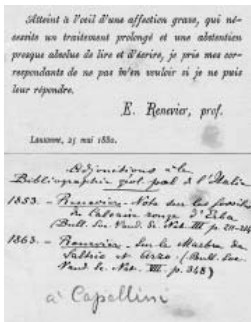 Atteint à l'œil d'une affection grave, qui né-
cessite un traitement prolongé et une abstention
presque absolue de lire et d'écrire, je prie mes cor-
respondants de ne pas m'en vouloir si je ne puis
leur répondre.
E. Renevier, prof.
Lausanne, 25 mai 1880.
Adjonctions à la
Bibliographie géol. pal. de l'Italie
1853. – Renevier – Note sur les fossiles
du Calcaire rouge d'Erba
(Bull. Soc. Vaud. Sc. Nat. III p. 211-214
1863. – Renevier – Sur le Marbre de
Saltrio et Arzo. (Bull. Soc.
Vaud. Sc. Nat. VII p. 348)
à Capellini